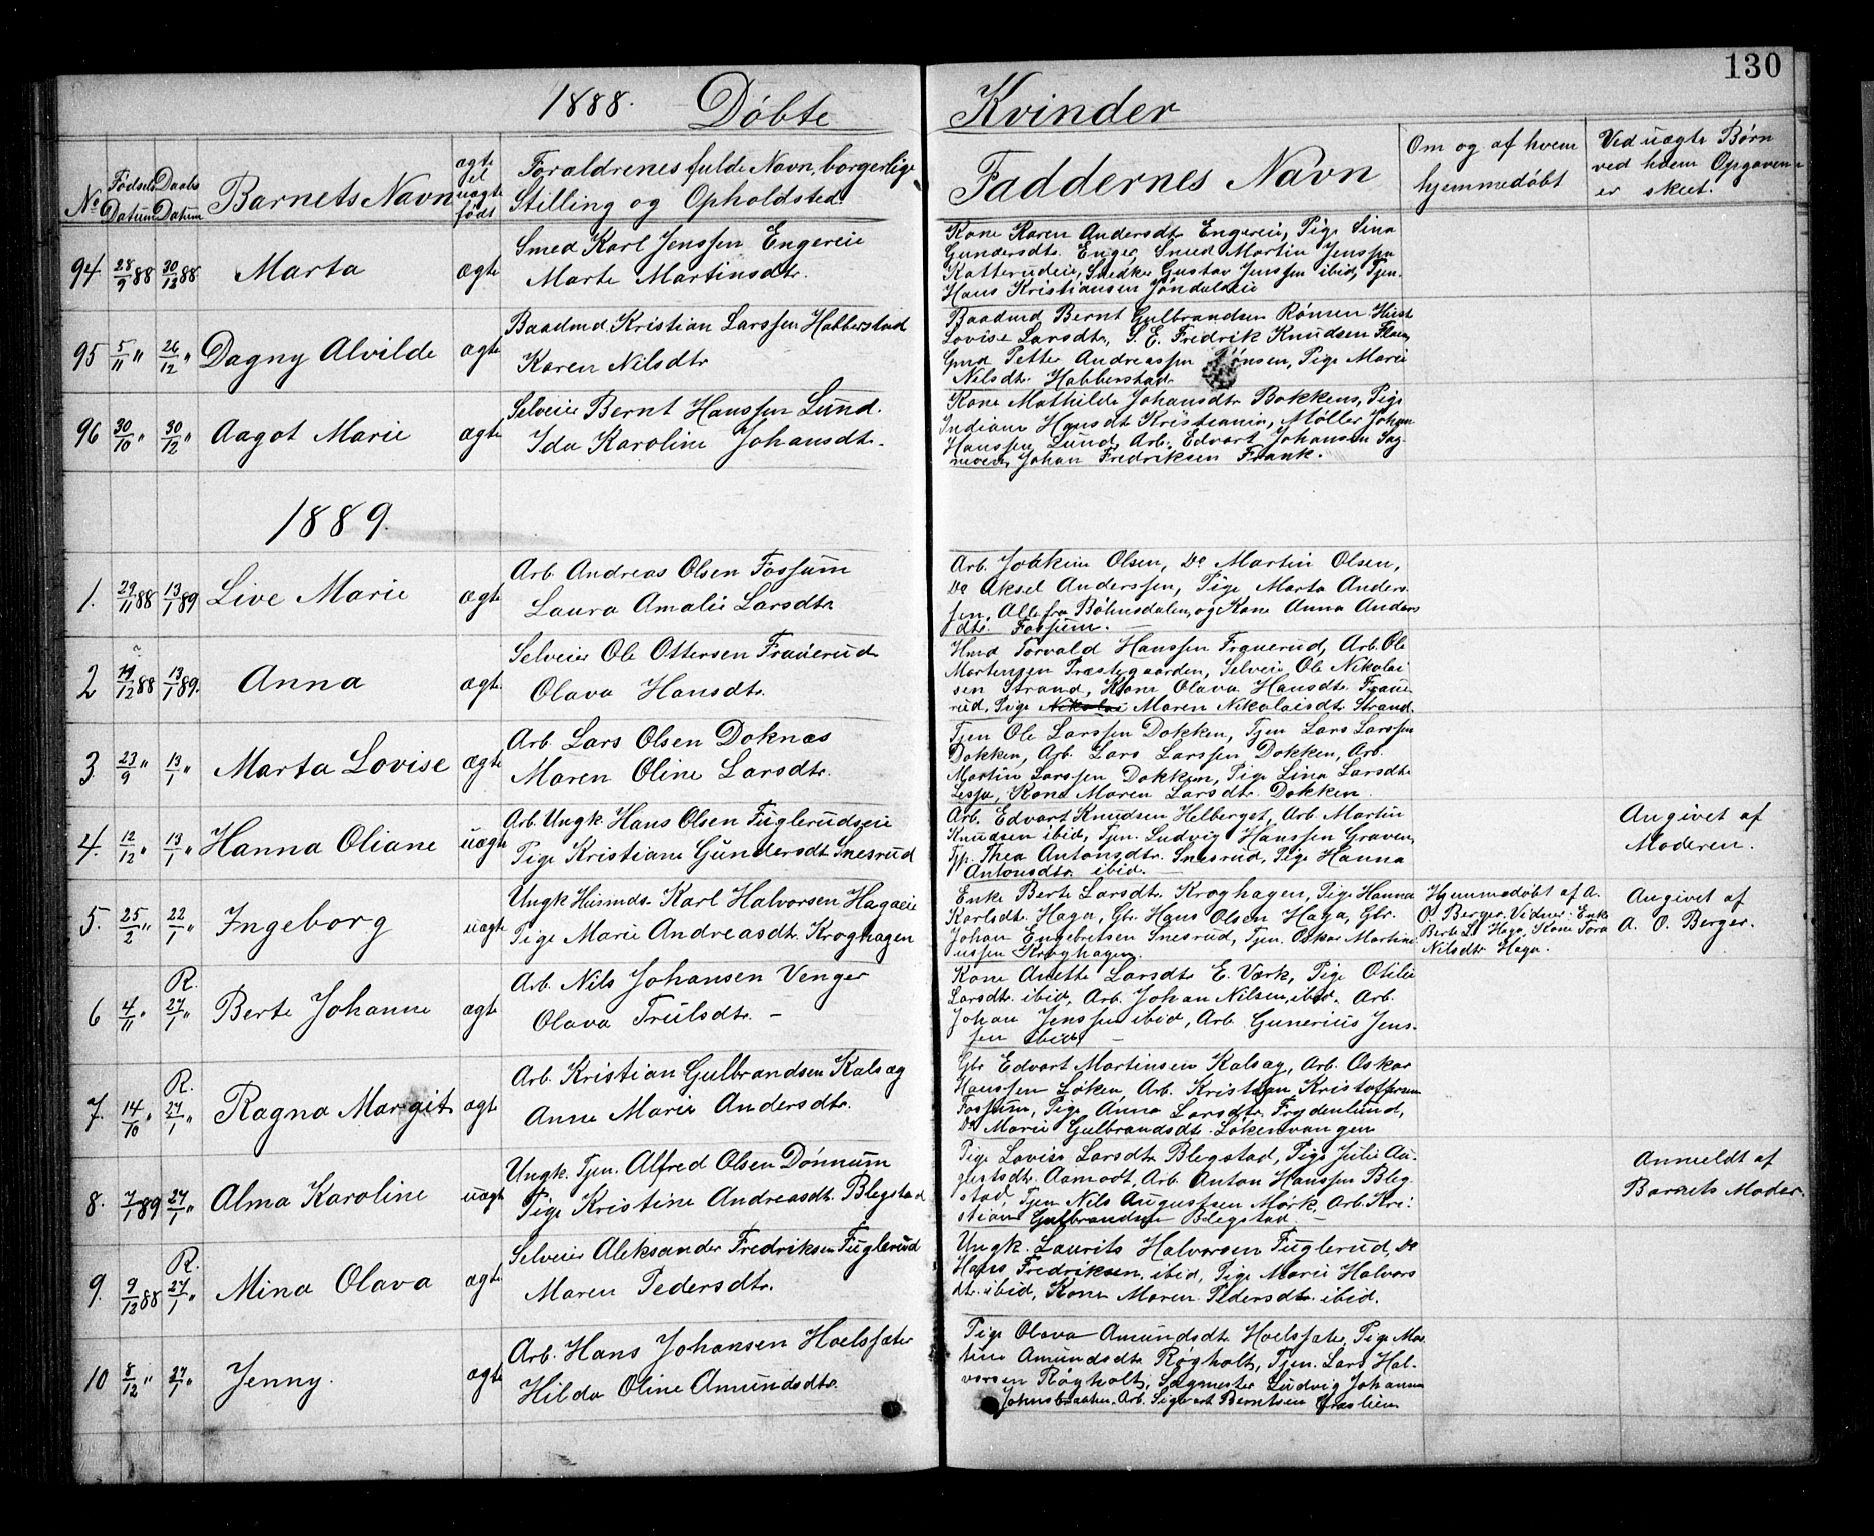 130
1888. Döbte Kvinder
No
Fødsels Datum
Daabs Datum
Barnets Navn
ægte el uægte født
Forældrenes fulde Navn, borgerlige
Stilling og Opholdsted.
Faddernes Navn
Om og af hvem
hjemmedöbt
Ved uægte Børn
ved hvem Opgaven
er skeet.
94 28/9 88 30/12 88 Marta ægte
Smed Karl Jenssen Engereie
Marte Martinsdtr.
Kone Karen Andersdtr Engereie, Pige Lina
Gundersdtr. Enger, Smed Martin Jenssen
Katterudeie, Snedker Gustav Jenssen ibid, Tjen.
Hans Kristiansen Jöndaleie
95 5/11 " 26/12 " Dagny Alvilde ægte
Baadmd Kristian Larssen Habberstad
Karen Nilsdtr
Baadmd Bernt Gulbrandsen Rönsen Hustr
Lovise Larsdtr, S. E. Fredrik Knudsen
Gmd Petter Andreassen Rönsen, Pige Marie
Nilsdtr. Habberstad
96 30/10 " 30/12 " Aagot Marie ægte
Selveier Bernt Hanssen Lund.
Ida Karoline Johansdtr.
Kone Mathilde Johansdtr Bakkens, Pige
Indiane Hansdtr Kristiania, Møller Johan
Hanssen Lund, Arb. Edvart Johansen Sag-
Johan Fredriksen Frank.
1889.
1. 29/11 88 13/1 89 Live Marie ægte
Arb. Andreas Olsen Fossum
Laura Amalie Larsdtr
Arb. Joakim Olsen, Do Martin Olsen,
Do Aksel Anderssen, Pige Marta Anders-
sen. Alle fra Bøhnsdalen, og Kone Anna Anders
dtr. Fossum. —
2 14/12 88 13/1 89. Anna ægte
Selveier Ole Ottersen Frauerud
Olava Hansdtr.
Hmd Torvald Hanssen Fruerud, Arb. Ole
Martensen Præstegaarden, Selveier Ole Nikolai
sen Strand, Kone Olava Hansdtr. Fraue-
rud, Pige Nikolai Maren Nikolaisdtr Strand.
3 23/9 " 13/1 " Marta Lovise ægte
Arb. Lars Olsen Doknæs
Maren Oline Larsdtr.
Tjen Ole Larssen Dokken, Tjen Lars Larssen
Dokken, Arb. Lars Larssen Dokken, Arb.
Martin Larssen Dokken, Pige Lina Larsdtr
Lesja, Kone Maren Larsdtr. Dokken.
4. 12/12 " 13/1 " Hanna Oliane uægte
Arb. Ungk Hans Olsen Fuglerudseie
Pige Kristiane Gundersdt. Snesrud
Arb. Edvart Knudsen Helberget, Arb. Martin
Knudsen ibid, Tjen. Ludvig Hanssen Graven,
Thea Antonsdtr. Snesrud, Pige Hanna
Antonsdtr ibid. —
Angivet af
Moderen.
5. 25/2 " 22/1 " Ingeborg uægte
Ungk Husmds. Karl Halvorsen Hagaeie
Pige Marie Andreasdt. Kroghagen
Enke Berte Larsdtr. Kroghagen, Pige Hanna
Karlsdtr. Haga, Gbr. Hans Olsen Haga, Gbr.
Johan Engebretsen Snesrud, Tjen. Oskar Martini-
ussen Kroghagen.
Hjemmedöbt af A.
O. Berger. Vidner: Enke
Berte L. Haga, Kone Tora
Nilsdtr Haga.
Angivet af
A. O. Berger.
6 4/11 " R. 27/1 " Berte Johanne ægte
Arb. Nils Johansen Venger
Olava Trulsdtr. —
Kone Anette Larsdtr E. Værk, Pige Otilie
Larsdtr. ibid, Arb. Johan Nilsen, ibid. Arb.
Johan Jenssen ibid, Arb. Gunerius Jens-
sen ibid. —
7. 14/10 " R. 27/1 " Ragna Margit ægte
Arb. Kristian Gulbrandsen Kalsæg
Anne Marie Andersdtr.
Gbr Edvart Martinsen Kalsæg, Arb. Oskar
Hanssen Løken, Arb. Kristian Kristoffersen
Fossum, Pige Anna Larsdtr. Frydenlund,
Do Marie Gulbrandsdtr. Løkenvangen
8. 7/1 89 27/1 " Alma Karoline uægte
Ungk. Tjen. Alfred Olsen Dønnum
Pige Kristine Andreasdt. Blegstad
Pige Lovise Larsdtr. Blegstad, Pige Julie Au-
gustsdtr. Aamodt, Arb. Anton Hanssen Bleg-
stad, Tjen. Nils Augustsen Mørk, Arb. Kri-
stian Gulbrandsen Blegstad. —
Anmeldt af
Barnets Moder.
9. 9/12 88 R. 27/1 " Mina Olava ægte
Selveier Aleksander Fredriksen Fuglerud
Maren Pedersdtr.
Ungk. Laurits Halvorsen Fuglerud, Do
Hans Fredriksen. ibid, Pige Marie Halvors
dtr. ibid, Kone Maren Pedersdtr. ibid.
10 8/12 " 27/1 " Jenny. ægte
Arb. Hans Johansen Hoelsfæter
Hilda Oline Amundsdtr.
Pige Olava Amundsdtr Hoelsfæter, Pige Mar-
tine Amundsdtr Røgholt, Tjen. Lars Hal-
vorsen Røgholt, Sagmester Ludvig Johansen
Johnsbraaten. Arb. Sigvart Berntsen